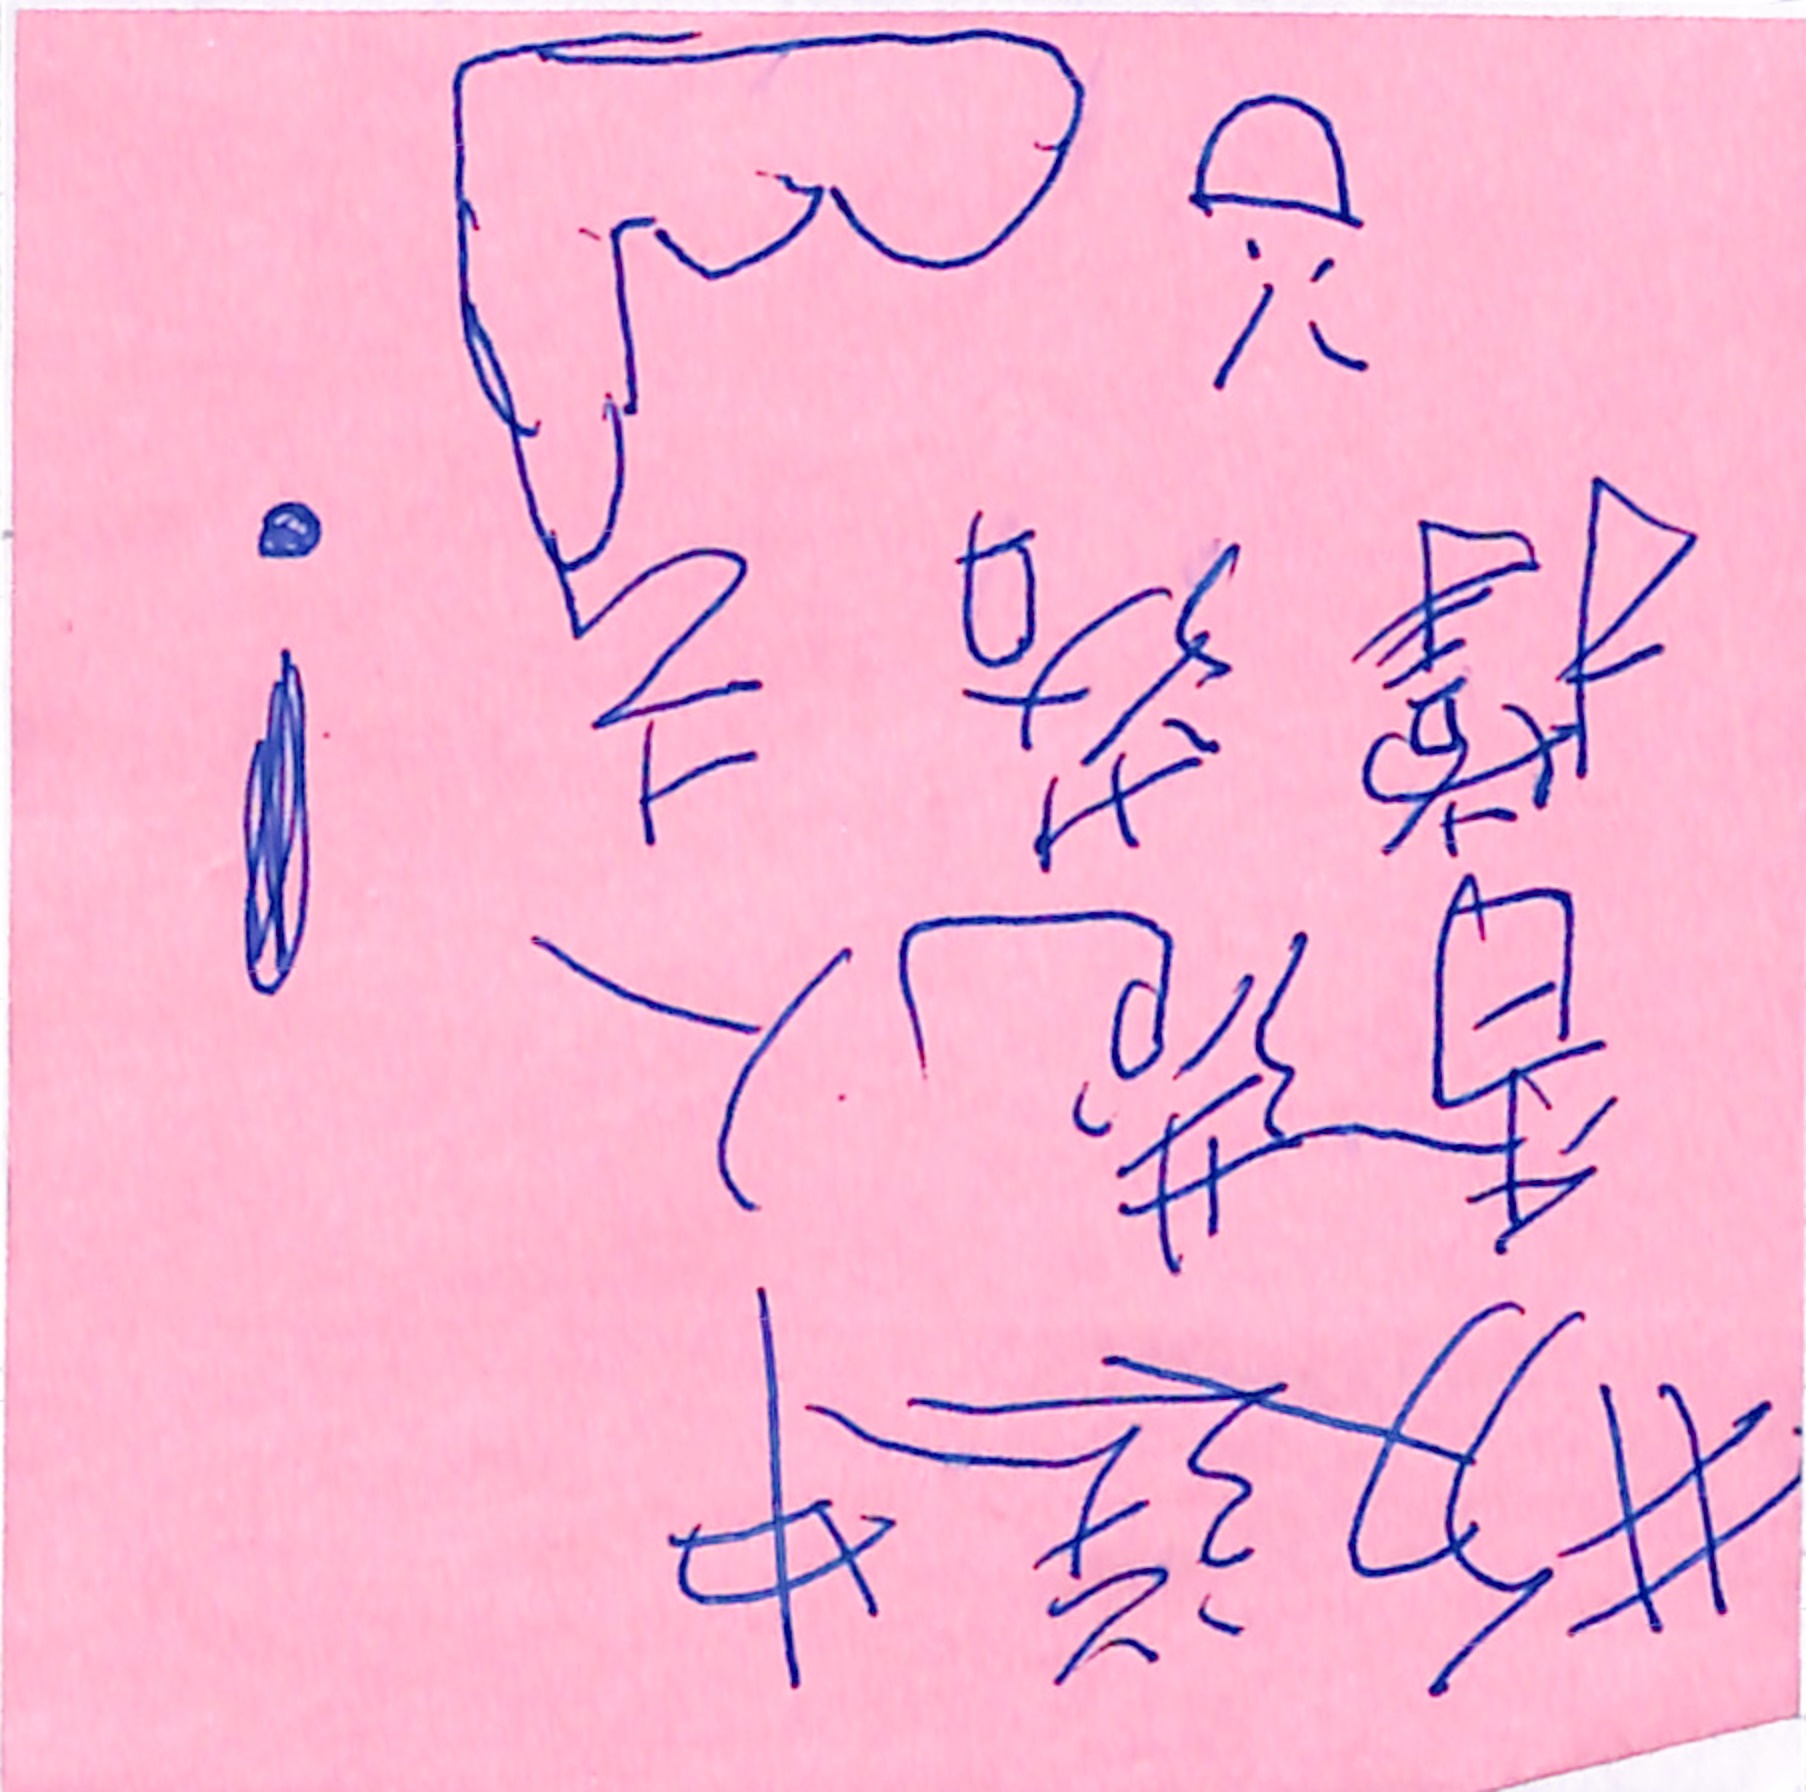 #反送中
香港人
撐落去!